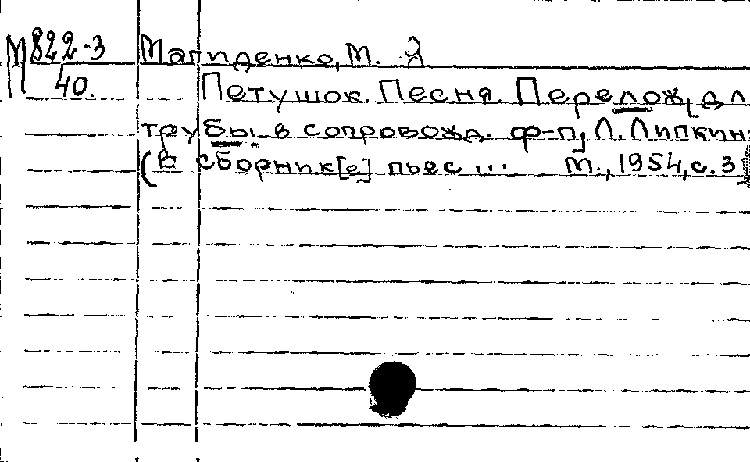 М 822-3 Магиденко, М. Я
40. Петушок. Песня. Перелож. дл
трубы в сопровожд. ф-п, Л. Липкин
(В сборник[е] пьес ... М., 1954, с. 3